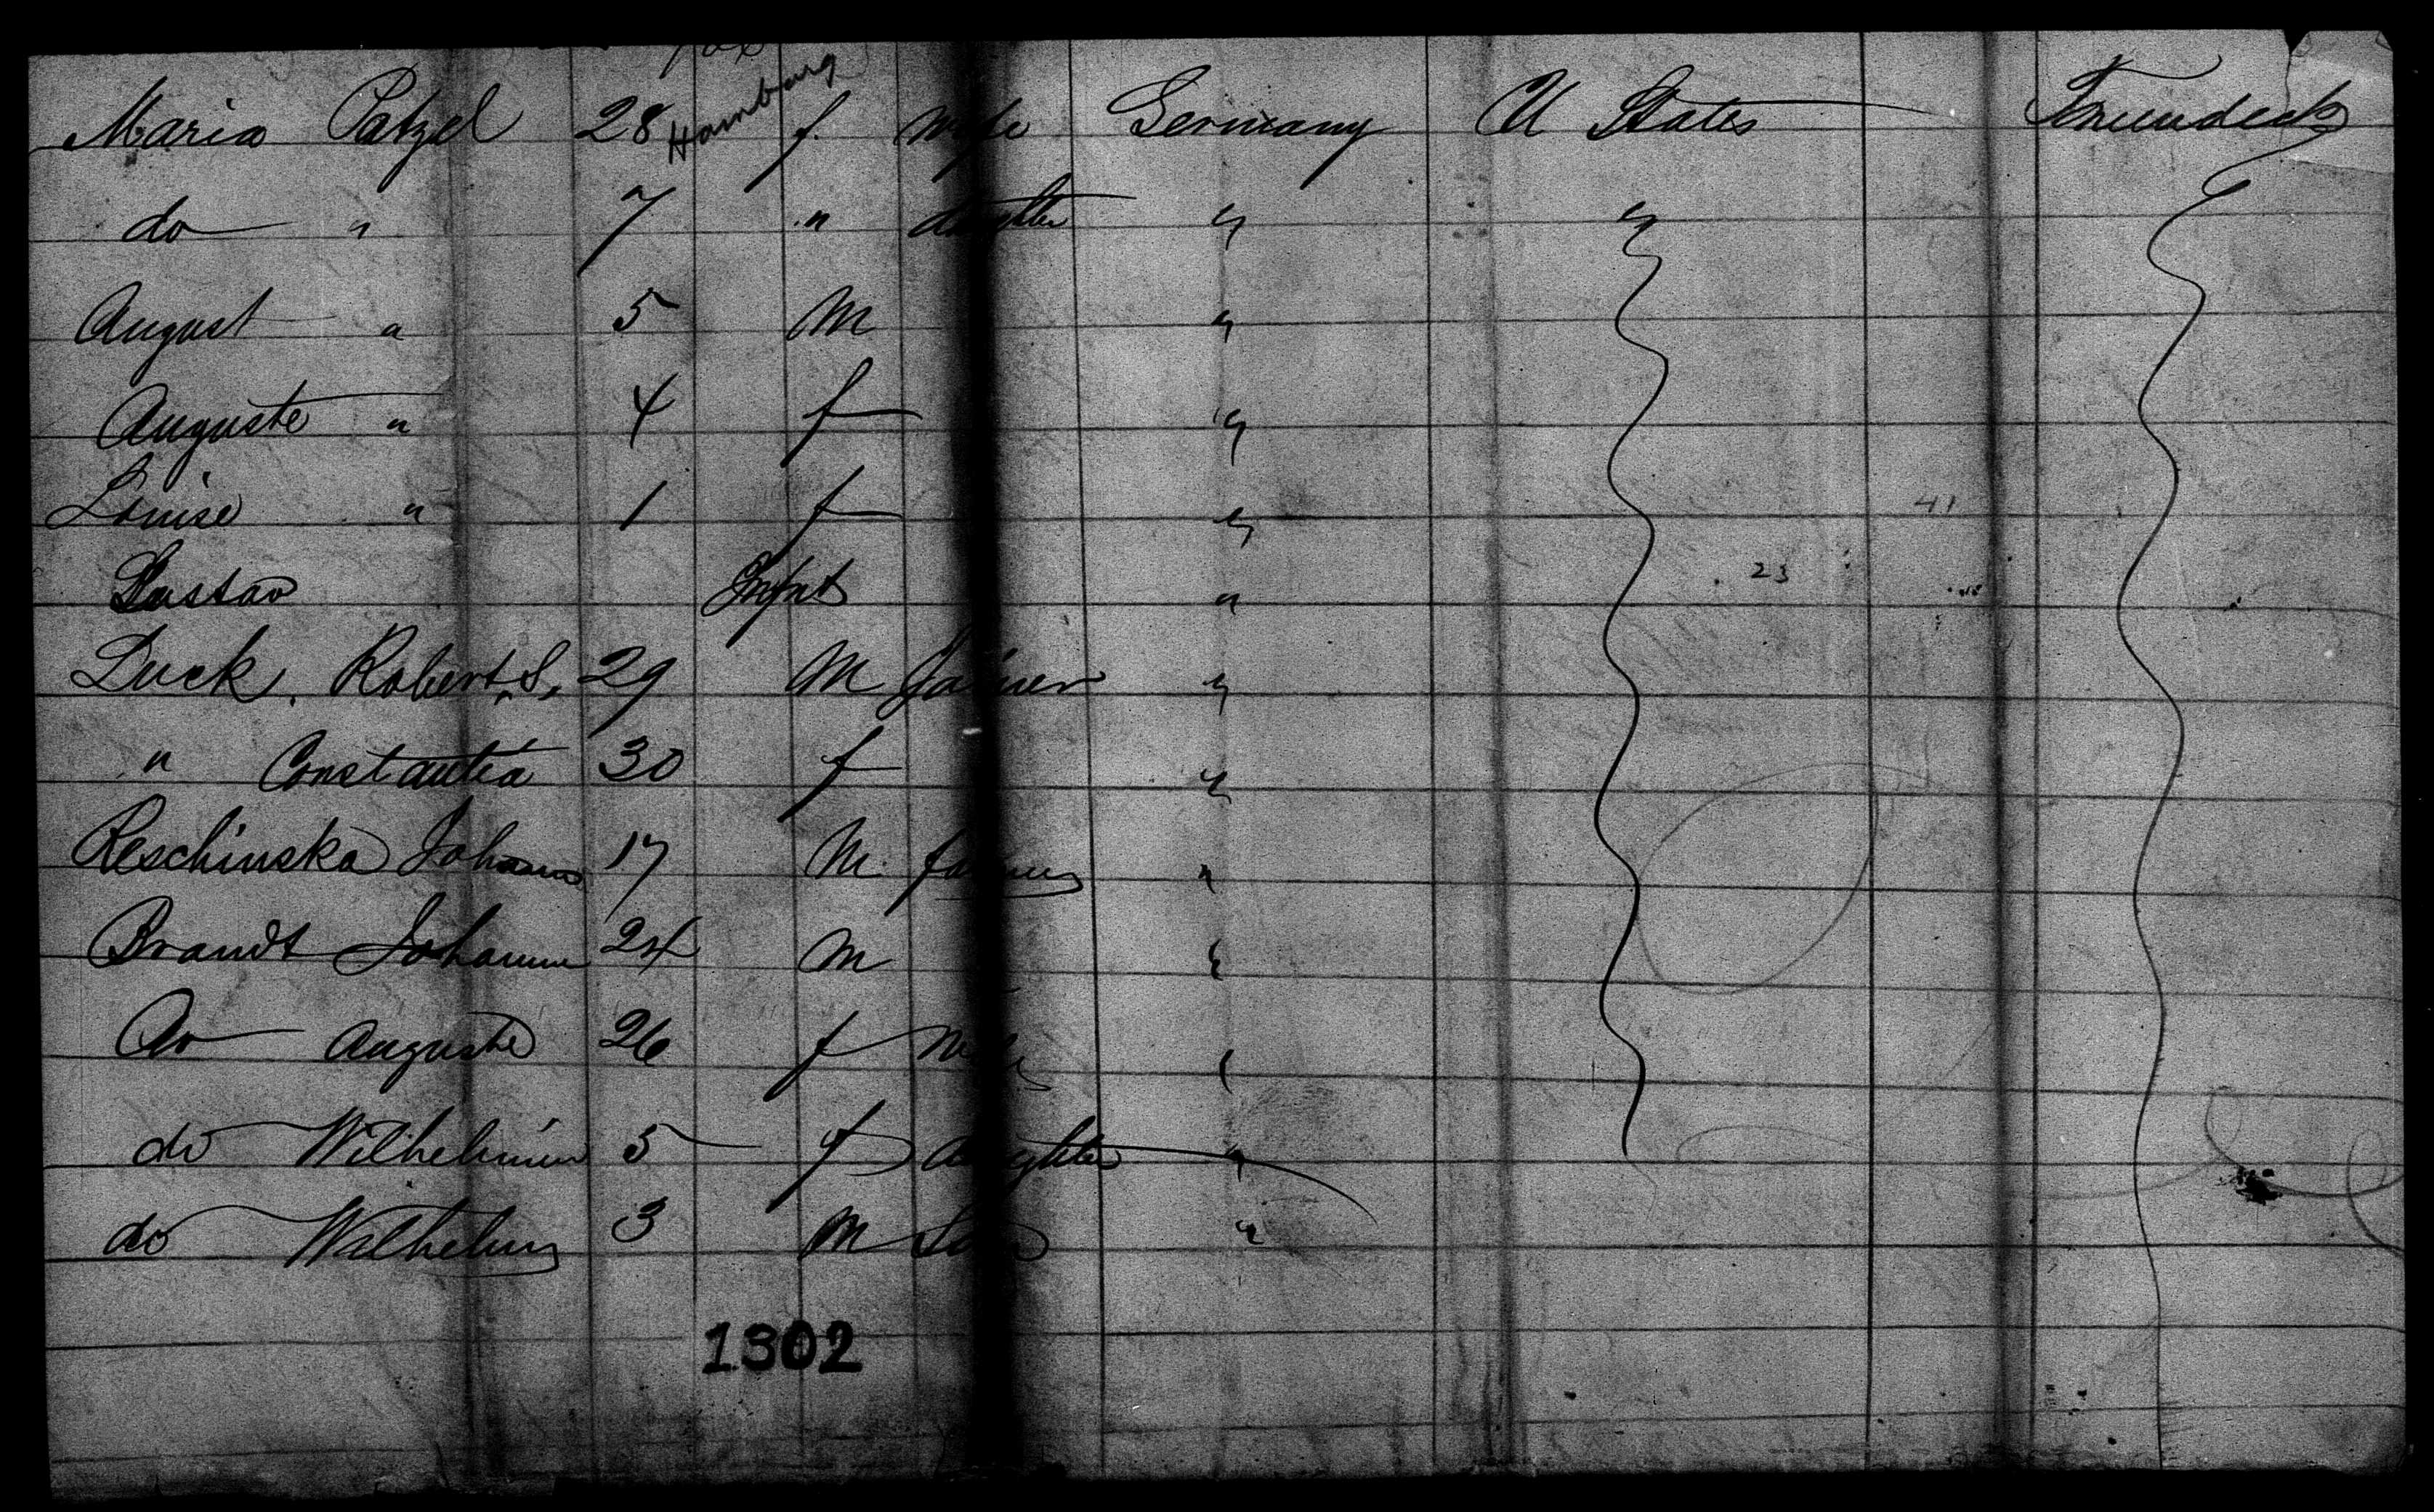 Hamburg
Maria Patzel 28 f. Wife Germany U States
do " 7 " daughter " "
August " 5 M "
Auguste " 4 f "
Louise " 1 f " 41
Gustav Infnt " 23
Luck, Robert S. 29 M "
" Constantia 30 f "
Reschinska Johann 17 M. farmer "
Brandt Johann 24 M "
Do Auguste 26 f Wife "
do Wilhelmin 5 f Daughter "
do Wilhelm 3 M Son "
1302